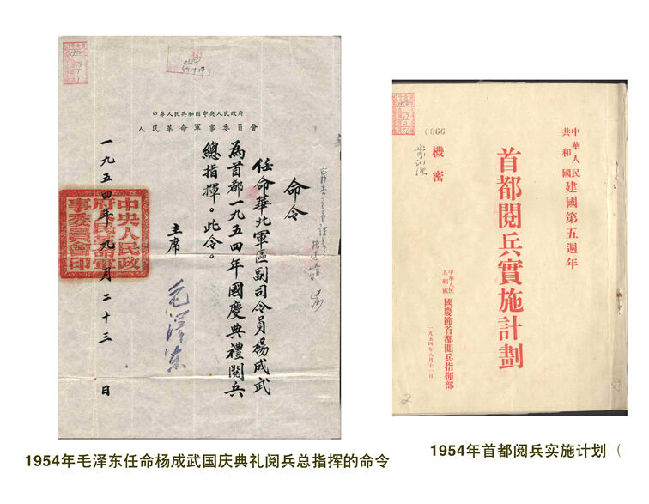 中華人民共和國中央人民政府
人民革命軍事委員會
命令
任命華北軍區副司令員楊成武
為首都一九五四年國慶典禮閱兵
總指揮。此令。
主席
毛澤東
一九五四年九月二十三日
中央人民政
府人民革命軍
事委員會印
中華人民
共和國
建國第五週年
首都閱兵實施計劃
機密
中華人民
共和國
國慶節首都閱兵指揮部
一九五四年八月十一日
2
1954年毛泽东任命杨成武国庆典礼阅兵总指挥的命令
1954年首都阅兵实施计划（